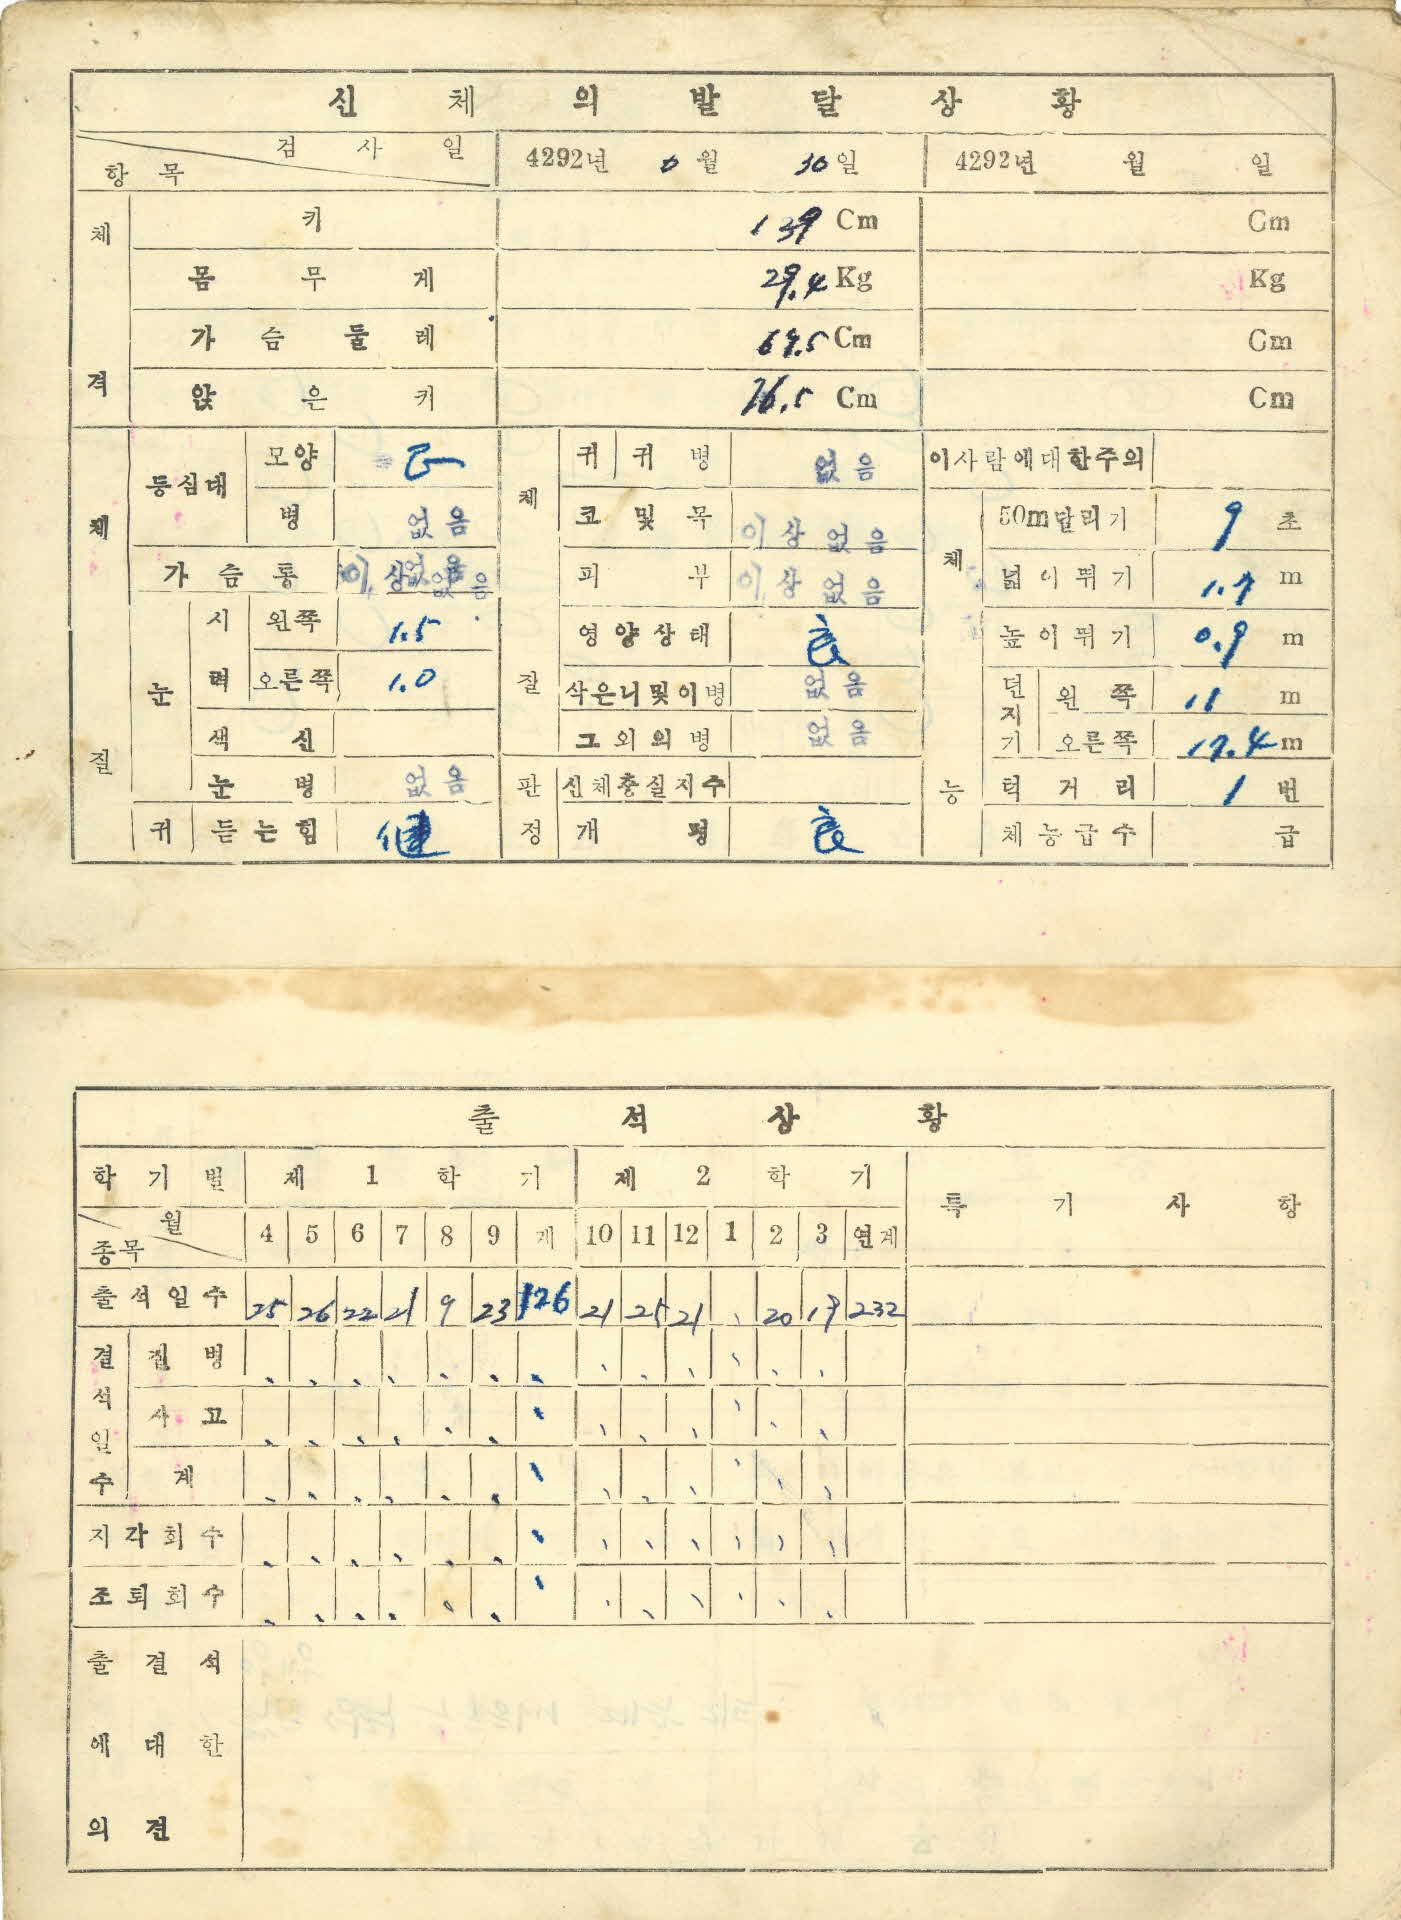 신 체 의 발 달 상 황
검 사 일
항 목
4292년 월 30일
4292년 월 일
체 격
키 139 Cm Cm
몸 무 게 29.4 Kg Kg
가 슴 둘 레 Cm Cm
앉 은 키 76.5 Cm Cm
체 질
등심대 모양 乙
병 없음
가 슴 통 이상없음
눈 시 력 왼쪽 1.5
오른쪽 1.0
색 신
눈 병 없음
귀 듣는힘
체 질
귀 귀 병 없음
코 및 목 이상없음
피 부 이상없음
영양상태 良
삭은니및이병 없음
그 외 의 병 없음
판 정
신체충실지수
개 평 良
이사람에대한주의
체 능
50m달리기 9 초
넓이뛰기 m
높이뛰기 0.9 m
던지기 왼 쪽 11 m
오른쪽 17.4 m
턱 거 리 1 번
체능급수 급
출 석 상 황
학 기 별 제 1 학 기 제 2 학 기 특 기 사 항
월
종목
4 5 6 7 8 9 계 10 11 12 1 2 3 연계
출석일수 25 26 22 21 9 23 126 21 25 21 20 19 232
결석일수
질 병
사 고
계
지각회수
조퇴회수
출 결 석
에 대 한
의 견